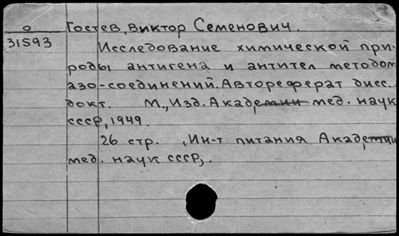 о Гостев, Виктор Семенович.
31593
Исследование химической при-
роды антигена и антител методом
азо-соединений. Автореферат дисс.
докт. М., Изд. Академии мед. наук
СССР, 1949.
26 стр. (Ин-т питания Академии
мед. наук СССР).